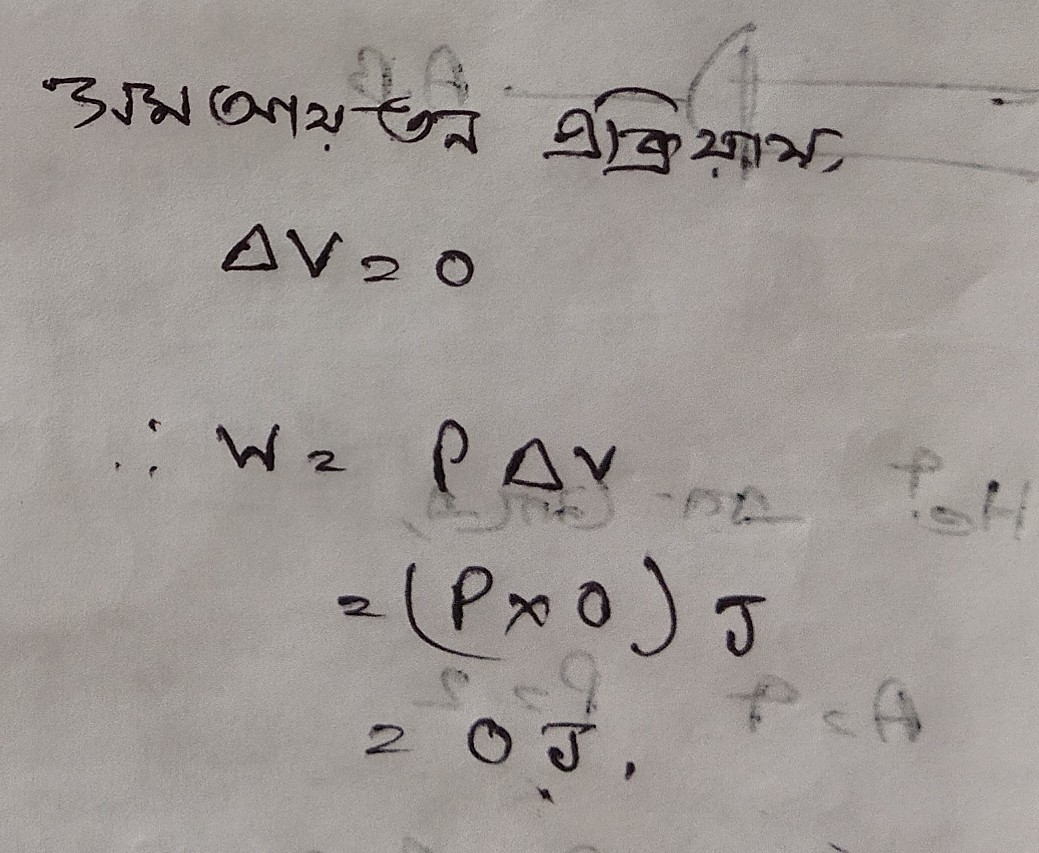 সমআয়তন প্রক্রিয়ায়,
ΔV = 0
∴ W = PΔV
= (P×0) J
= 0 J.